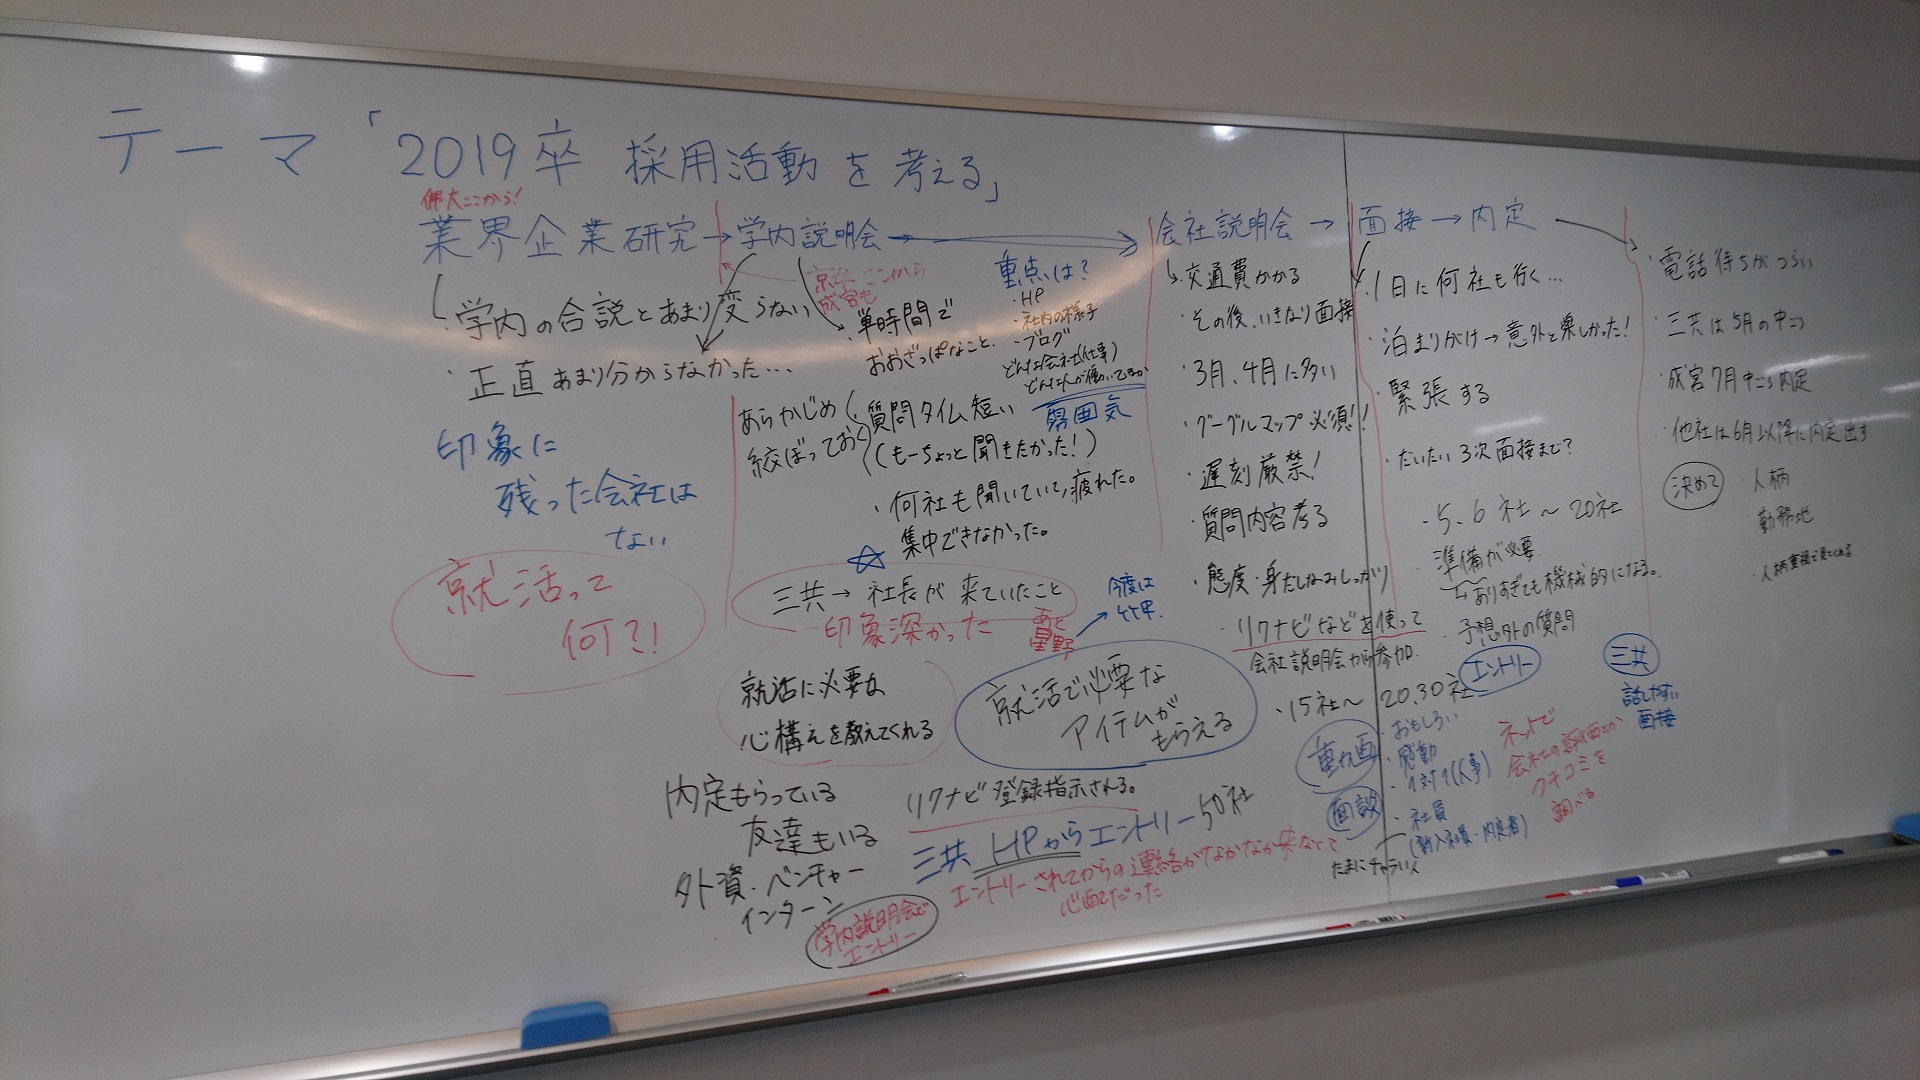 テーマ「2019卒 採用活動を考える」
ここから!
業界企業研究→学内説明会→
会社説明会→面接→内定
学内の合説とあまり変らない
・正直あまり分からなかった…
印象に
残った会社は
ない
就活って
何?!
ここから
成宮も
・単時間で
おおざっぱなこと.
重点は?
・HP
・社内の様子
・ブログ
どんな会社(仕事)
どんな人が働いてるか
雰囲気
あらかじめ
絞ぼっておく
質問タイム短い
(もーちょっと聞きたかった!)
・何社も聞いていて,疲れた。
集中できなかった。
☆
三共→社長が来ていたこと
印象深かった
あと
星野
今度は
竹甲.
就活に必要な
心構えを教えてくれる
就活で必要な
アイテムが
もらえる
内定もらっている
友達もいる
外資・ベンチャー
インターン
学内説明会で
エントリー
リクナビ登録指示される。
三共 HPからエントリー50社
エントリーされてからの連絡がなかなか来なくて
心配だった
・交通費かかる
・その後、いきなり面接
・3月、4月に多い
・グーグルマップ必須!!
・遅刻厳禁!
・質問内容考る
・態度・身だしなみしっかり
・リクナビなどを使って
会社説明会から参加.
・15社〜20.30社
エントリー
動画
・おもしろい
・感動
・1対1(人事)
面談
・社員
(新入社員・内定者)
たまにチャラい人
・1日に何社も行く…
・泊まりがけ→意外と楽しかった!
・緊張する
・だいたい3次面接まで?
・5、6社〜20社
・準備が必要.
ありすぎても機械的になる。
・予想外の質問
ネットで
会社の評価とか
クチコミを
調べる
三共
話しやすい
面接
・電話待ちがつらい
・三共は5月の中ごろ
・成宮7月中ごろ内定
・他社は6月以降に内定出す
決めて
・人柄
・勤務地
・人柄重視で見てくれる